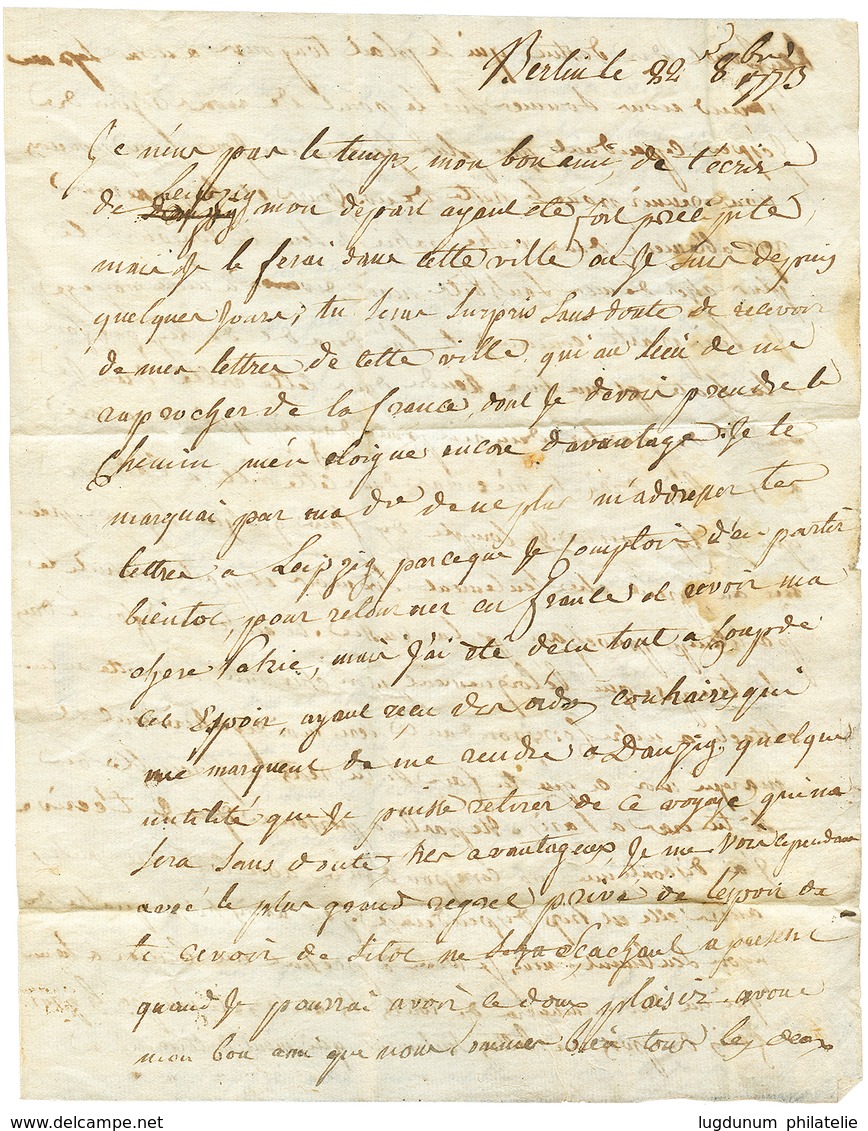 Berlin le 22 8bre 1773
Je n'eus pas le temps, mon bon ami, de t'ecrire
de leipzig mon depart ayant eté fort precipité,
mais Je le ferai dans cette ville ou Je suis depuis
quelques Jours; tu seras surpris sans doute de recevoir
de mes lettres de cette ville, qui au lieu de me
raprocher de la france, dont Je devois prendre le
Chemin, m'en eloigne encore d'avantage. Je te
marquai par ma dre de ne plus m'addresser tes
lettres a Leipzig parceque Je Comptois d'en partir
bientot, pour retourner en france et revoir ma
chere Patrie, mais J'ai eté decu tout a Coup de
cet Espoir ayant reçu des ordres contraires qui
me marquent de me rendre a Danzig, quelque
utilité que Je puisse retirer de ce voyage qui me
sera sans doute tres avantageux Je me vois cependant
avec le plus grand regret privé de l'espoir de
te revoir de sitot ne sachant a present
quand Je pourrai avoir ce doux plaisir avoue
mon bon ami que nous sommes bien tous les deux
lugdunum philatelie